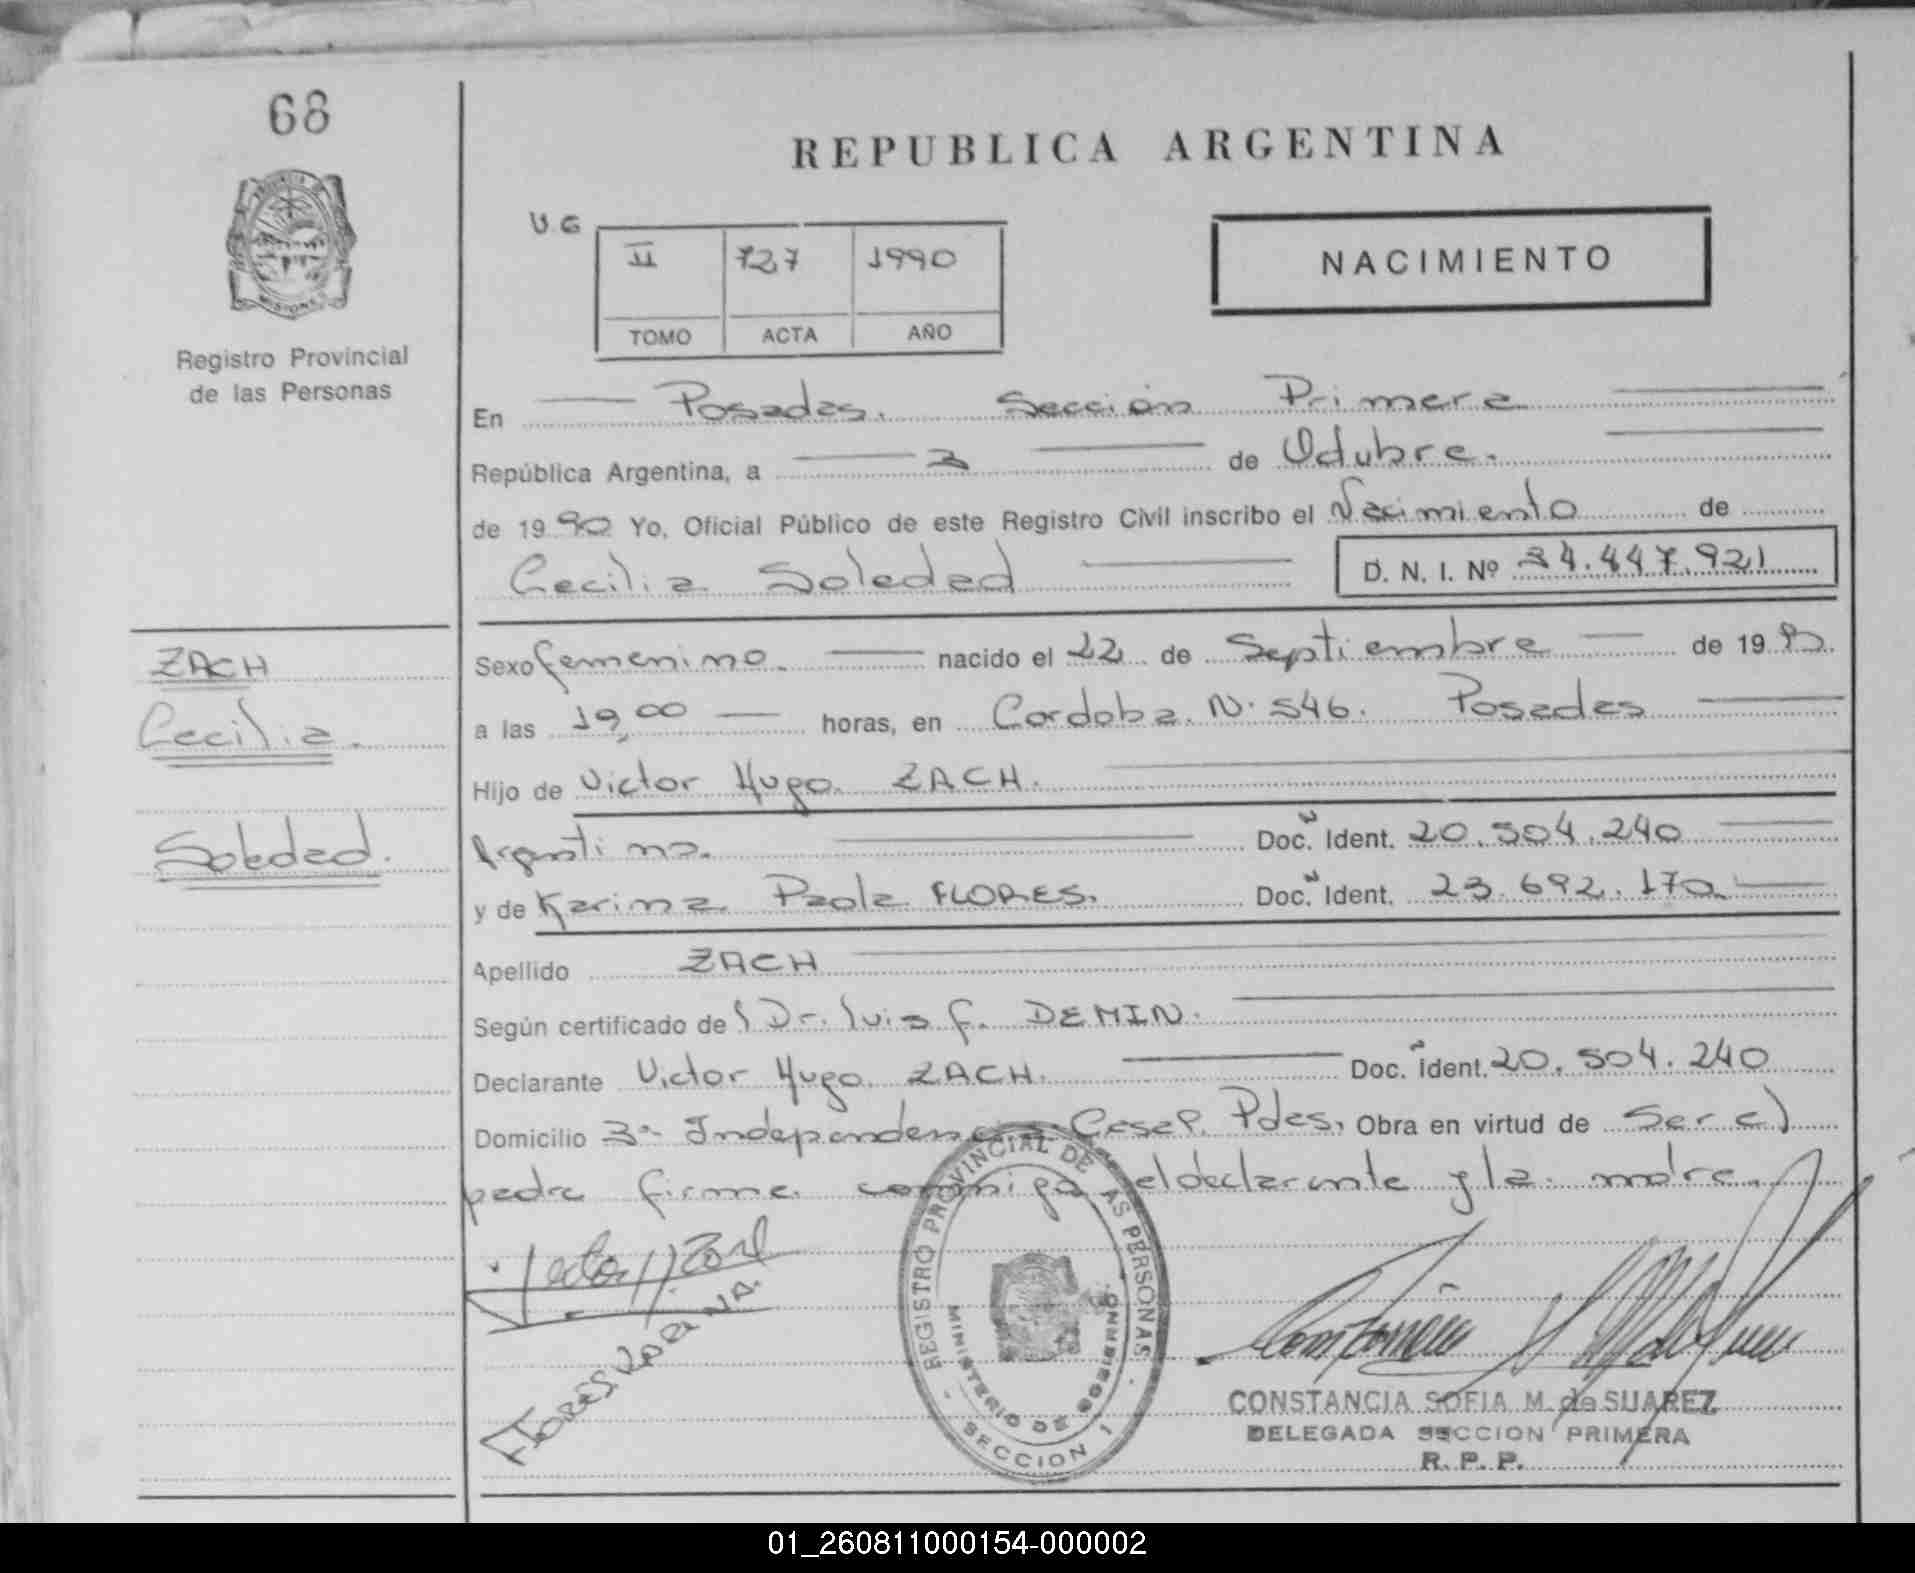 68
REPUBLICA ARGENTINA
Registro Provincial
de las Personas
U.G
II 727 1990
TOMO ACTA AÑO
NACIMIENTO
En Posadas. Sección Primera
República Argentina, a 3 de Octubre.
de 1990 Yo, Oficial Público de este Registro Civil inscribo el Nacimiento de
Cecilia Soledad D. N. I. Nº 34.447.921
ZACH
Cecilia.
Soledad.
Sexo femenino. nacido el 22 de Septiembre de 1990.
a las 19,00 horas, en Cordoba. N. 546. Posadas
Hijo de Victor Hugo. ZACH.
Argentino. Doc. Ident. 20.504.240
y de Karina Paola FLORES. Doc. Ident. 23.692.170
Apellido ZACH
Según certificado de Dr. Luis F. DEMIN.
Declarante Victor Hugo ZACH. Doc. Ident. 20.504.240
Domicilio 3a Independencia Pdas. Obra en virtud de ser el
padre firma conmigo el declarante y la madre.
FLORES KARINA.
REGISTRO PROVINCIAL DE LAS PERSONAS
MINISTERIO DE GOBIERNO
SECCION 1
CONSTANCIA SOFIA M. de SUAREZ
DELEGADA SECCION PRIMERA
R. P. P.
01_260811000154-000002